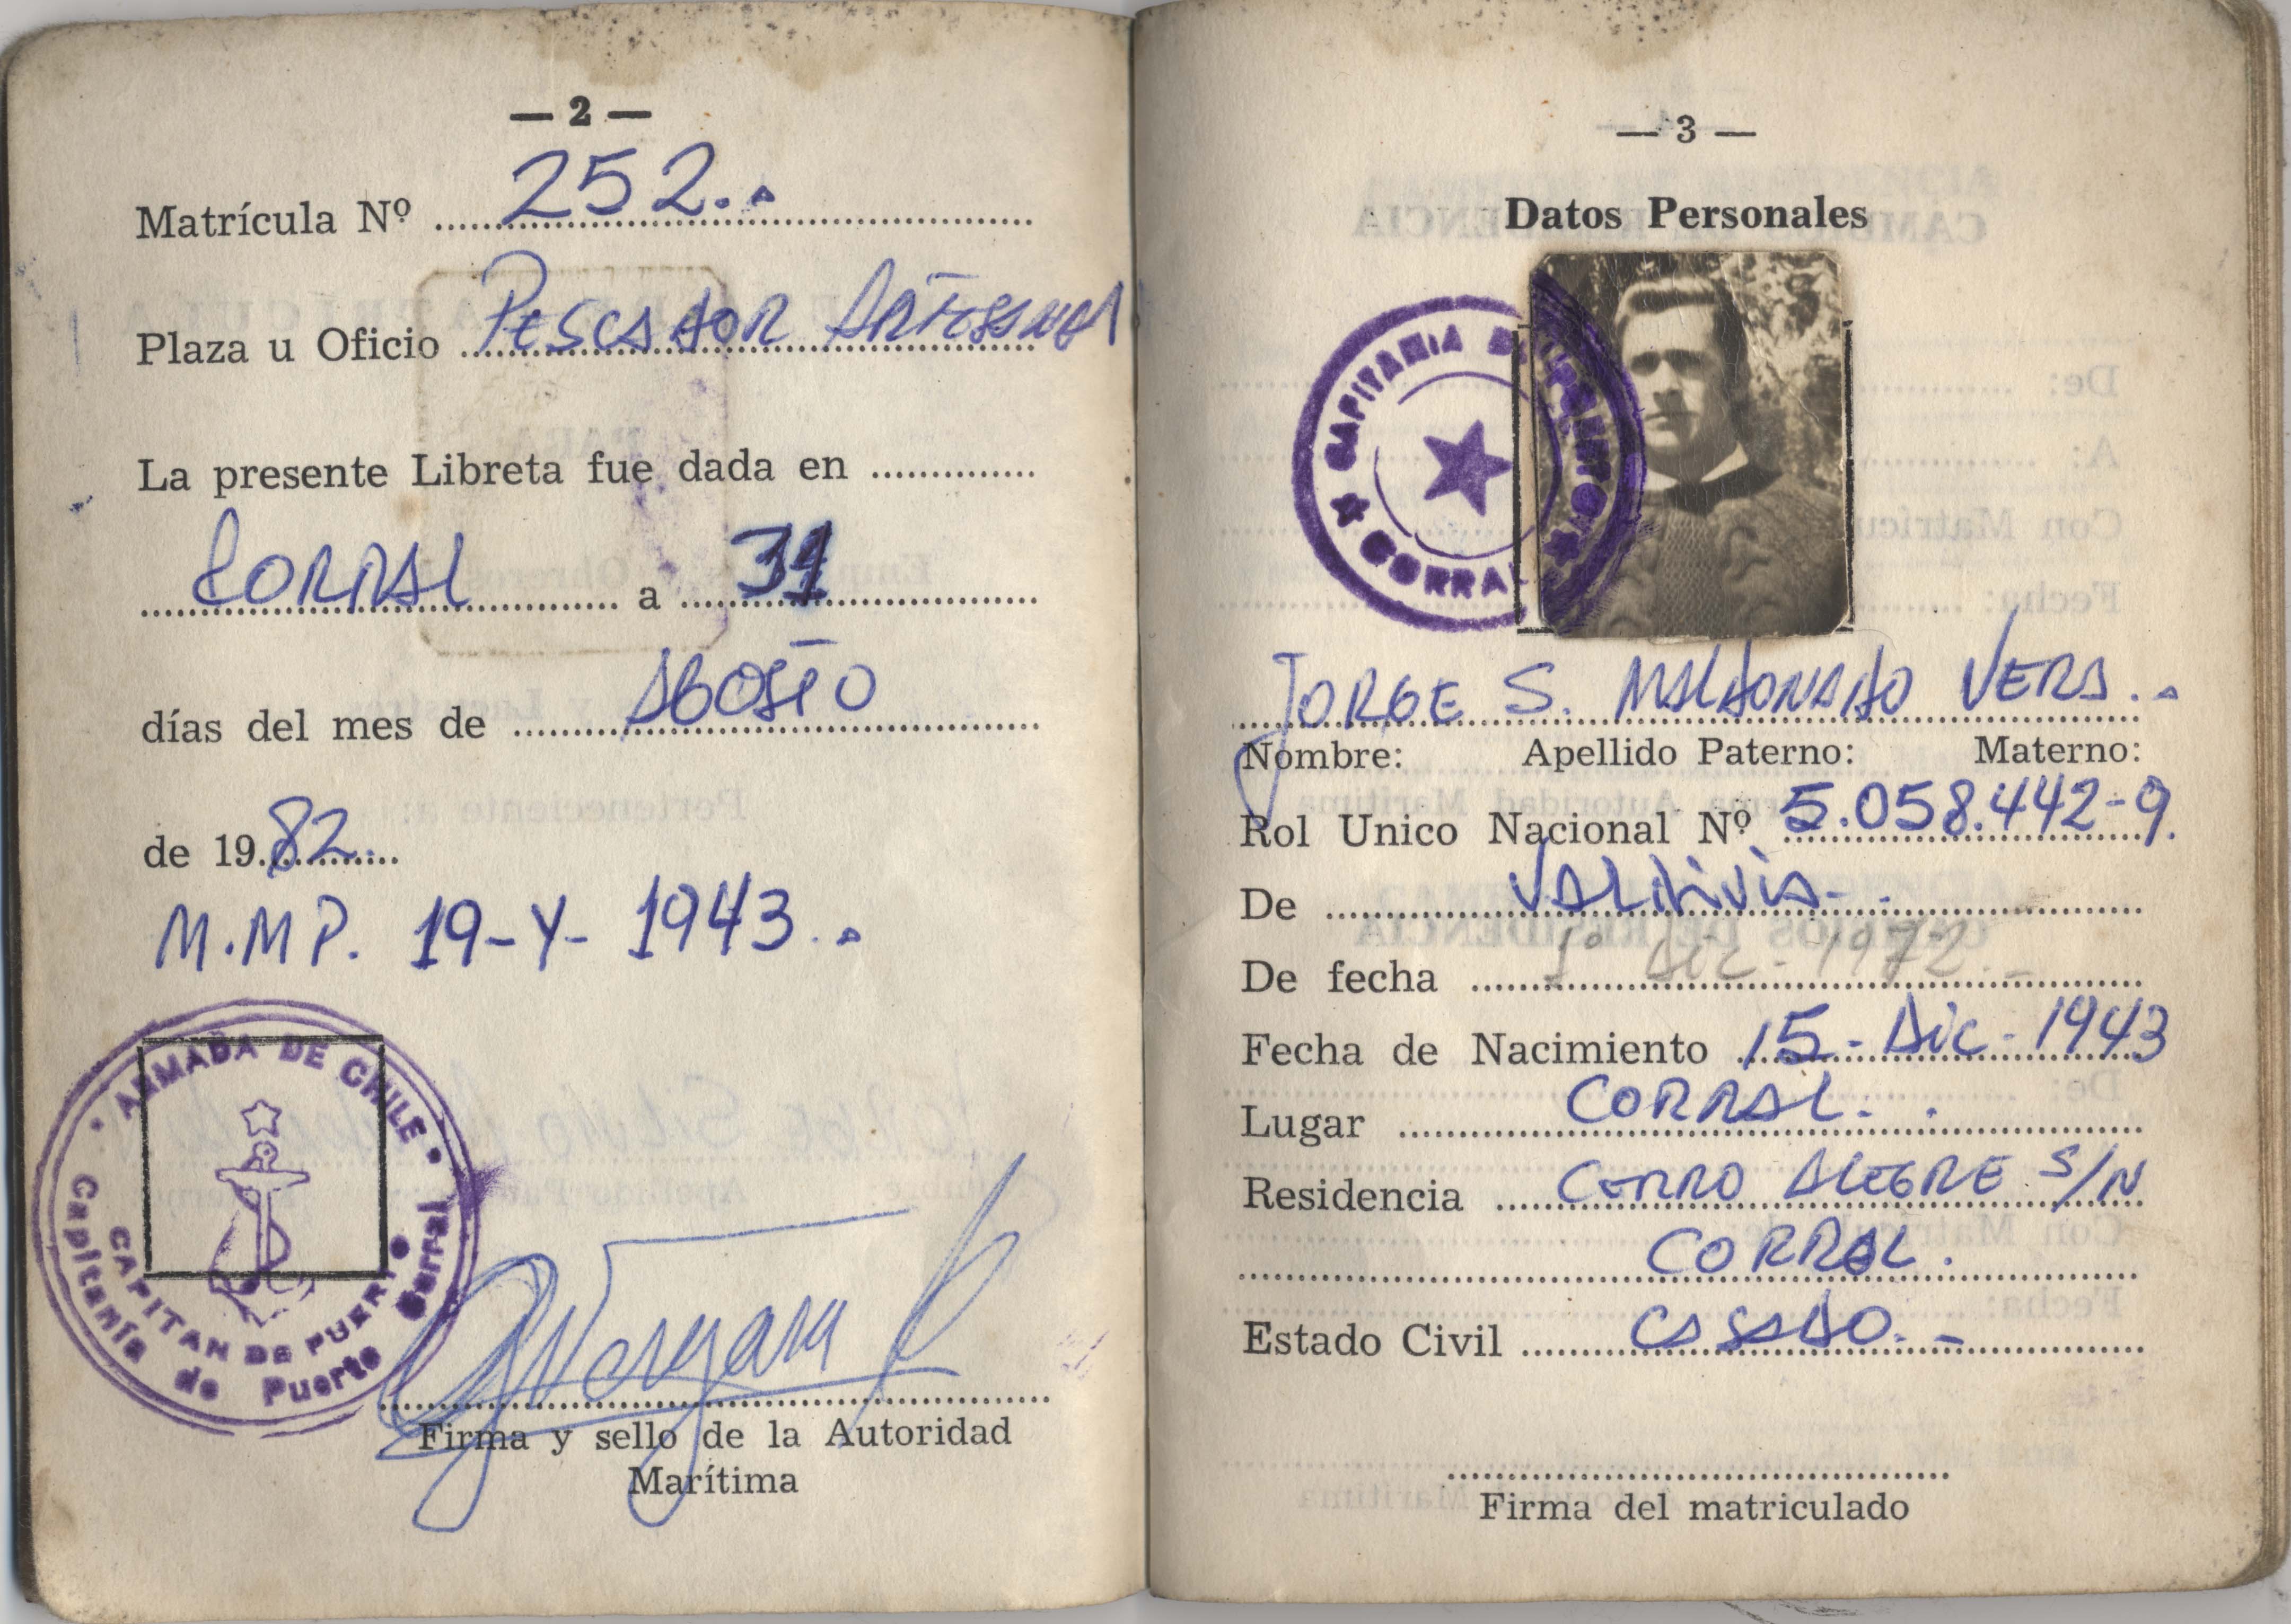 — 2 —
Matrícula Nº 252..
Plaza u Oficio PESCADOR ARTESANAL
La presente Libreta fue dada en
CORRAL a 31
días del mes de AGOSTO
de 1982.
M.M P. 19-Y- 1943..
ARMADA DE CHILE
CAPITAN DE PUERTO
Capitanía de Puerto Corral
Firma y sello de la Autoridad
Marítima
— 3 —
Datos Personales
CAPITANIA DE PUERTO
CORRAL
JORGE S. MALDONADO VERA..
Nombre: Apellido Paterno: Materno:
Rol Unico Nacional Nº 5.058.442-9.
De VALDIVIA-.
De fecha 1º Dic - 1972.-
Fecha de Nacimiento 15- Dic - 1943
Lugar CORRAL. .
Residencia CERRO ALEGRE S/N
CORRAL.
Estado Civil CASADO.-
Firma del matriculado